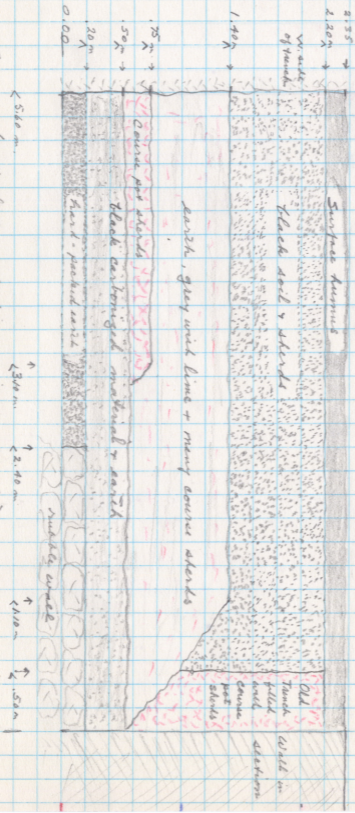 2.35
2.20m
W. side
of trench
1.40m
.75m
.50m
.20m
0.00
Surface humus
black soil & sherds
earth, grey with lime & many coarse sherds
Coarse pot sherds
black carbonized material & earth
hard-packed earth
rubble wall
Old
Trench
filled
with
coarse
pot
sherds
Wall in
section
< 5.60 m.
< 3.00 m.
< 2.40 m
< 1.10 m
< .50 m